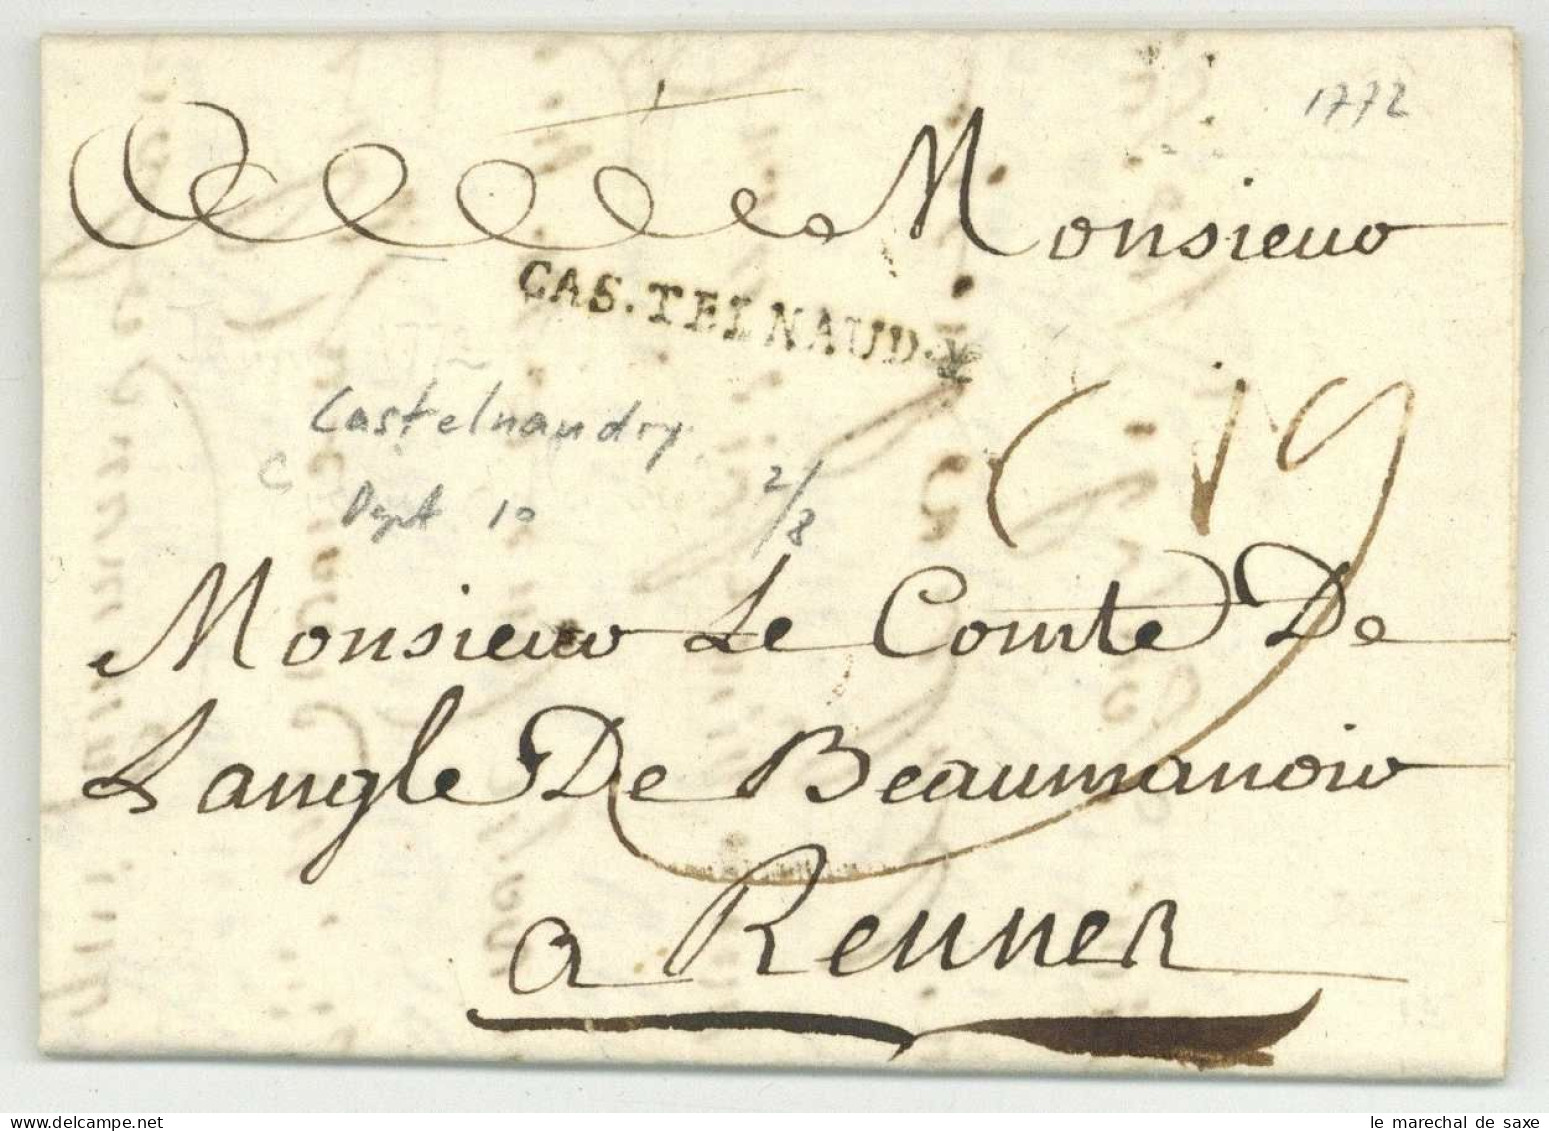 1772
Monsieur
CAS.TELNAUD.Y
19
Castelnaudry
C
Dept 10
2/8
Monsieur Le Comte De
Langle De Beaumanoir
a Rennes
le marechal de saxe